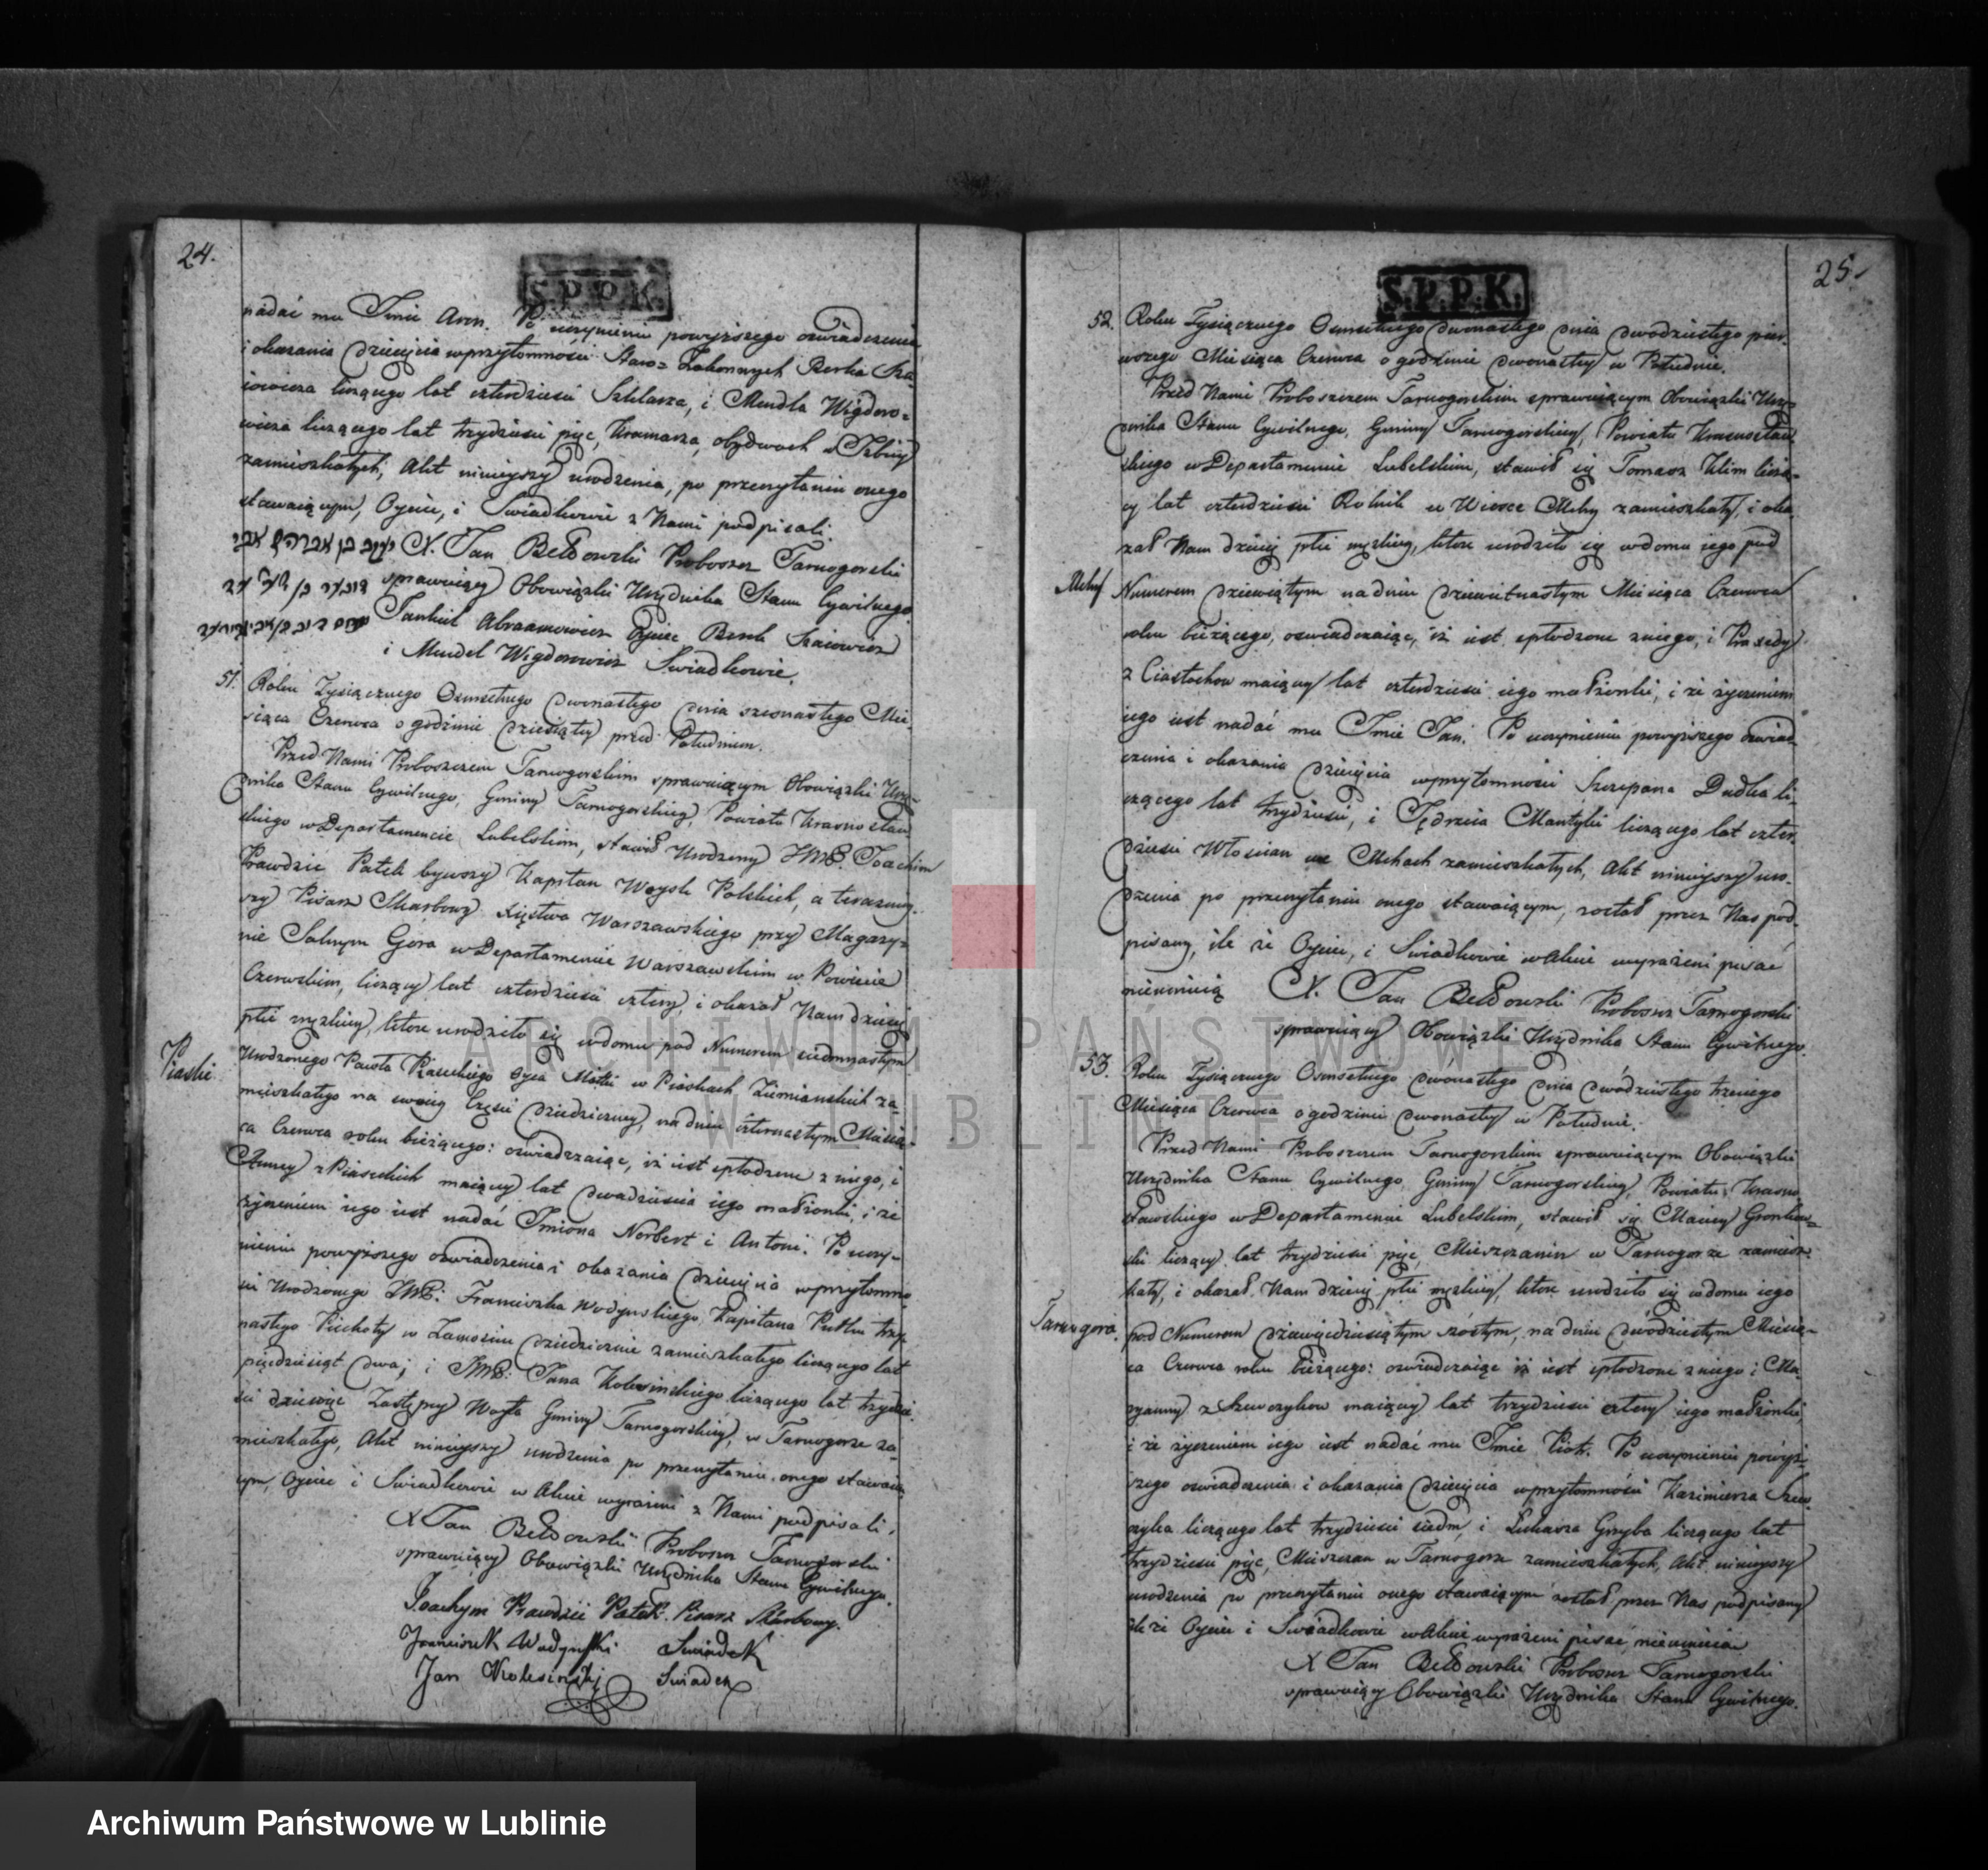 24.
S.P.P.K.
nadać mu Imie Aron. Po uczynieniu powyższego oświadczenia
i okazania Dziecięcia w przytomności Staro= Zakonnych Berka Sza=
iowicza liczącego lat czterdzieści Szklarza, i Mendla Wigdoro=
wicza liczącego lat trzydzieści pięć, Kramarza, obydwoch w Izbicy
zamieszkałych, Akt ninieyszy urodzenia, po przeczytaniu onego
stawaiącym, Oyciec, i Swiadkowie z Nami podpisali.
X. Jan Bełdowski Proboszcz Tarnogorski
sprawuiący Obowiązki Urzędnika Stanu Cywilnego
Jankiel Abraamowicz Oyciec Berek Szaiowicz
i Mendel Wigdorowicz Swiadkowie.
51. Roku Tysiącznego Osmsetnego Dwunastego Dnia szesnastego Mie=
siąca Czerwca o godzinie Dziesiątey przed Południem.
Przed Nami Proboszczem Tarnogorskim sprawuiącym Obowiązki Urzę=
Dnika Stanu Cywilnego, Gminy Tarnogorskiey, Powiatu Krasnostaw
skiego w Departamencie Lubelskim, stawił Urodzony JMP. Joachim
Prawdzic Patek bywszy Kapitan Woysk Polskich, a terazniey=
szy Pisarz Skarbowy Xięstwa Warszawskiego przy Magazy=
nie Solnym Gora w Departamencie Warszawskim w Powiecie
Czerwskim, liczący lat czterdzieści cztery, i okazał Nam dziecię
płci męzkiey, ktore urodziło się w domu pod Numerem siedmnastym
Piaski Urodzonego Pawła Piaseckiego Oyca Matki w Piaskach Ziemianskich za=
mieszkałego na swoiey Części Dziedziczney, na dniu czternastym Miesią=
ca Czerwca roku bieżącego: oświadczaiąc, iż iest spłodzone z niego, i
Anney z Piaseckich maiącey lat Dwadzieścia iego małżonki, i że
życzeniem iego iest nadać Imiona Norbert i Antoni. Po uczy=
nieniu powyższego oświadczenia i okazania Dziecięcia w przytomno
ści Urodzonego JMP: Franciszka Wodynskiego Kapitana Pułku trzy
nastego Piechoty w Zamosciu Dziedzicznie zamieszkałego liczącego lat
pięćdziesiąt Dwa; i JMP: Jana Kolesinskiego liczącego lat trzydzie=
ści dziewięć Zastępcy Woyta Gminy Tarnogorskiey, w Tarnogorze za=
mieszkałego, Akt ninieyszy urodzenia po przeczytaniu onego stawaią=
cym, Oyciec i Swiadkowie w Akcie wyrażeni z Nami podpisali.
X Jan Bełdowski Proboszcz Tarnogorski
sprawuiący Obowiązki Urzędnika Stanu Cywilnego.
Joachym Prawdzic Patek. Pisarz Skarbowy.
Franciszek Wodynski Swiadek
Jan Kolesinski Swiadek
25.
S.P.P.K.
52. Roku Tysiącznego Osmsetnego Dwunastego Dnia Dwudziestego pier
wszego Miesiąca Czerwca o godzinie Dwunastey w Południe.
Przed Nami Proboszczem Tarnogorskim sprawuiącym Obowiązki Urzę=
Dnika Stanu Cywilnego, Gminy Tarnogorskiey, Powiatu Krasnostaw
skiego w Departamencie Lubelskim, stawił się Tomasz Klim liczą=
cy lat czterdzieści Rolnik w Wiosce Mchy zamieszkały, i oka
zał Nam dziecię płci męzkiey, ktore urodziło się w domu iego pod
Mchy Numerem Dziewiątym na dniu Dziewiętnastym Miesiąca Czerwca
roku bieżącego, oświadczaiąc, iż iest spłodzone z niego, i Praxedy
z Ciastochow maiącey lat czterdzieści iego małżonki, i że życzeniem
iego iest nadać mu Imie Jan. Po uczynieniu powyższego oświad=
czenia i okazania Dziecięcia w przytomności Szczepana Dudka li=
czącego lat trzydzieści, i Jędrzeia Mantyki liczącego lat czter=
Dzieści Włościan we Mchach zamieszkałych, Akt ninieyszy uro=
Dzenia po przeczytaniu onego stawaiącym, został przez Nas pod=
pisany, ile że Oyciec, i Swiadkowie w Akcie wyrażeni pisać
nieumieią X. Jan Bełdowski Proboszcz Tarnogorski
sprawuiący Obowiązki Urzędnika Stanu Cywilnego.
53. Roku Tysiącznego Osmsetnego Dwunastego Dnia Dwudziestego trzeciego
Miesiąca Czerwca o godzinie Dwunastey w Południe.
Przed Nami Proboszczem Tarnogorskim sprawuiącym Obowiązki
Urzędnika Stanu Cywilnego, Gminy Tarnogorskiey, Powiatu Krasno
stawskiego w Departamencie Lubelskim, stawił się Maciey Gronkow=
ski liczący lat trzydzieści pięć, Mieszczanin w Tarnogorze zamiesz=
kały, i okazał Nam dziecię płci męzkiey, ktore urodziło się w domu iego
Tarnogora. pod Numerem Dziewięćdziesiątym szostym, na dniu Dwudziestym Miesią=
ca Czerwca roku bieżącego: oświadczaiąc iż iest spłodzone z niego i Ma=
ryanny z Szewczykow maiącey lat trzydzieści cztery iego małżonki,
i że życzeniem iego iest nadać mu Imie Piotr. Po uczynieniu powyż=
szego oświadczenia i okazania Dziecięcia w przytomności Kazimierza Szew
czyka liczącego lat trzydzieści siedm, i Łukasza Grzyba liczącego lat
trzydzieści pięć, Mieszczan w Tarnogorze zamieszkałych, Akt ninieyszy
urodzenia po przeczytaniu onego stawaiącym został przez Nas podpisany
ile że Oyciec i Swiadkowie w Akcie wyrażeni pisać nieumieią
X Jan Bełdowski Proboszcz Tarnogorski
sprawuiący Obowiązki Urzędnika Stanu Cywilnego.
ARCHIWUM PAŃSTWOWE
W LUBLINIE
Archiwum Państwowe w Lublinie